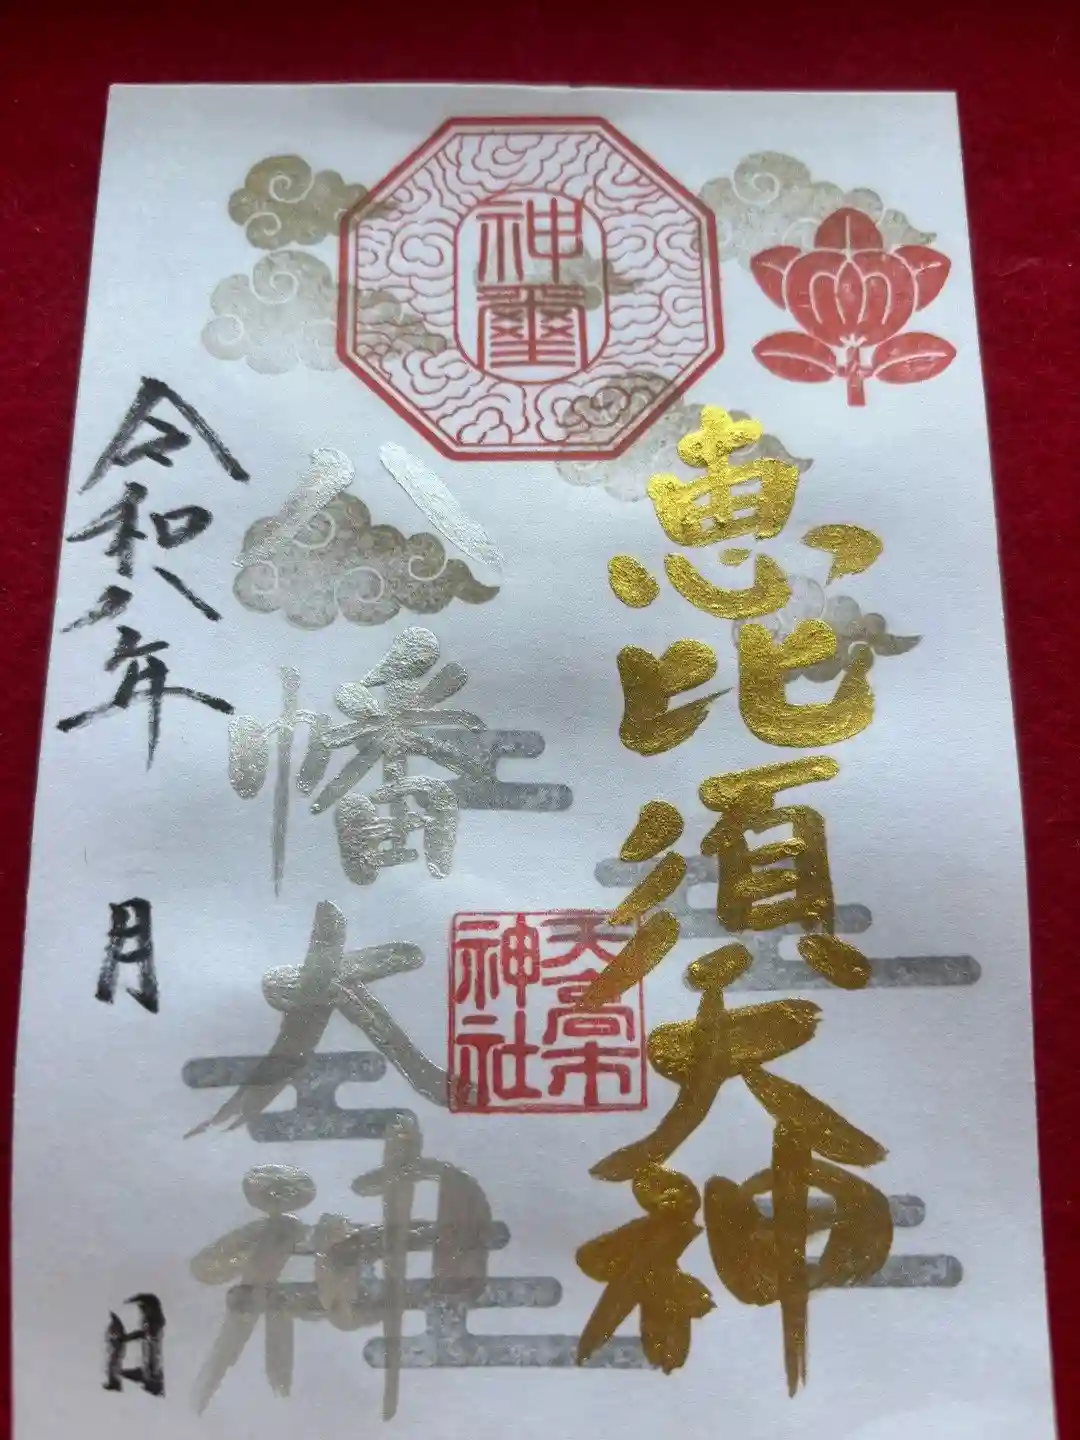 神璽
恵比須大神
天高市
神社
八幡大神
令和八年
月
日